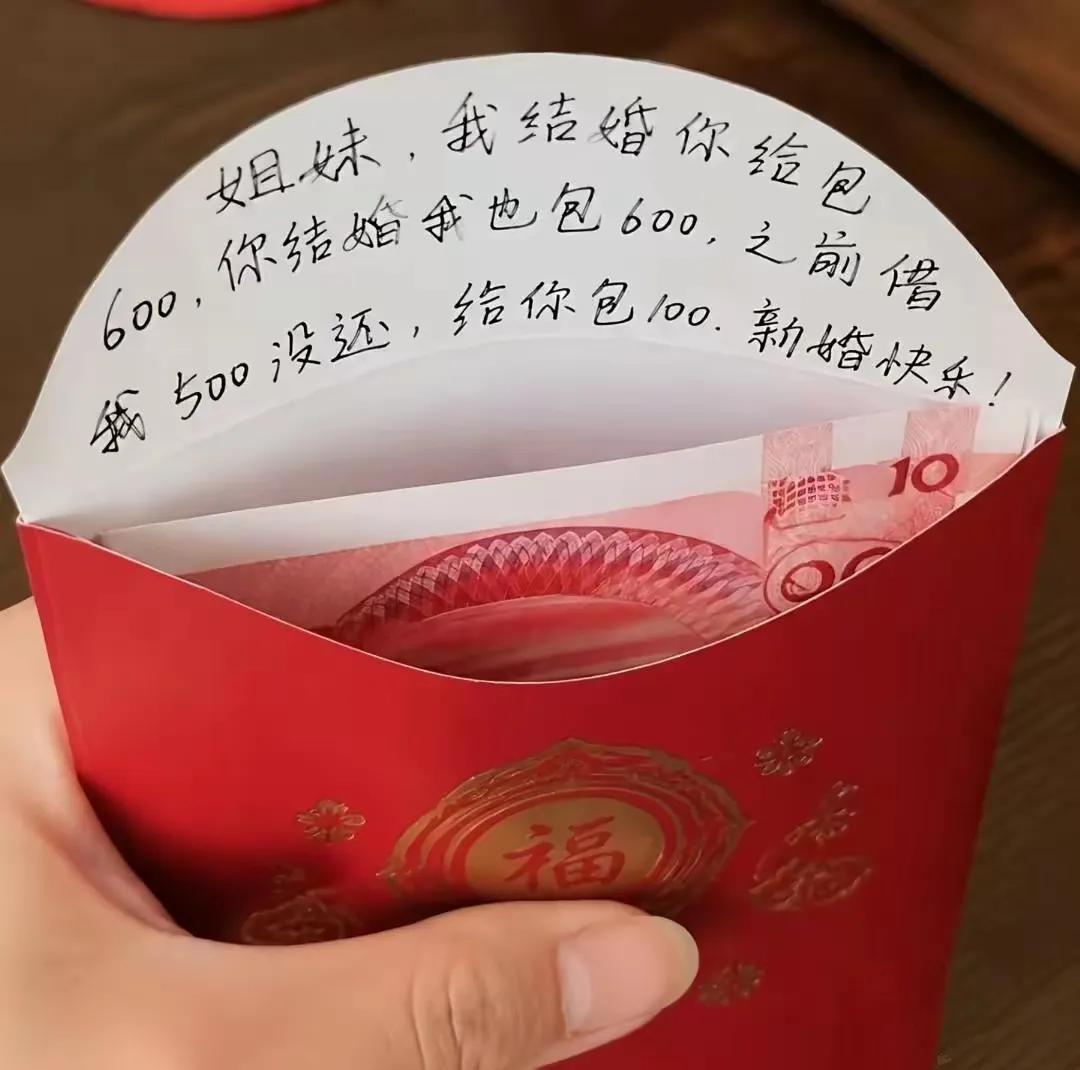 姐妹，我结婚你给包
600，你结婚我也包600，之前借
我500没还，给你包100.新婚快乐！
10
福